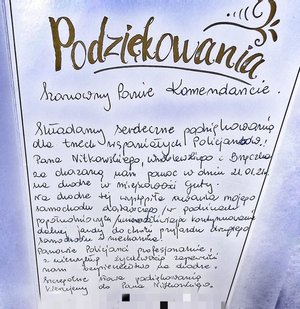 Podziękowania
Szanowny Panie Komendancie.
Składamy serdeczne podziękowania
dla trzech wspaniałych Policjantów:
Pana Nitkowskiego, i
za okazaną nam pomoc w dniu 21.01.21
na drodze w miejscowości Guty.
Na drodze tej wystąpiła awaria mojego
samochodu dostawczego w godzinach
popołudniowych kontynuowanie
dalszej jazdy do chwili przyjazdu
samochodu z mechanikiem.
Panowie Policjanci profesjonalnie,
z życzliwością zapewnili
nam bezpieczeństwo na drodze.
Szczególne słowa podziękowania
kierujemy do Pana Nitkowskiego.